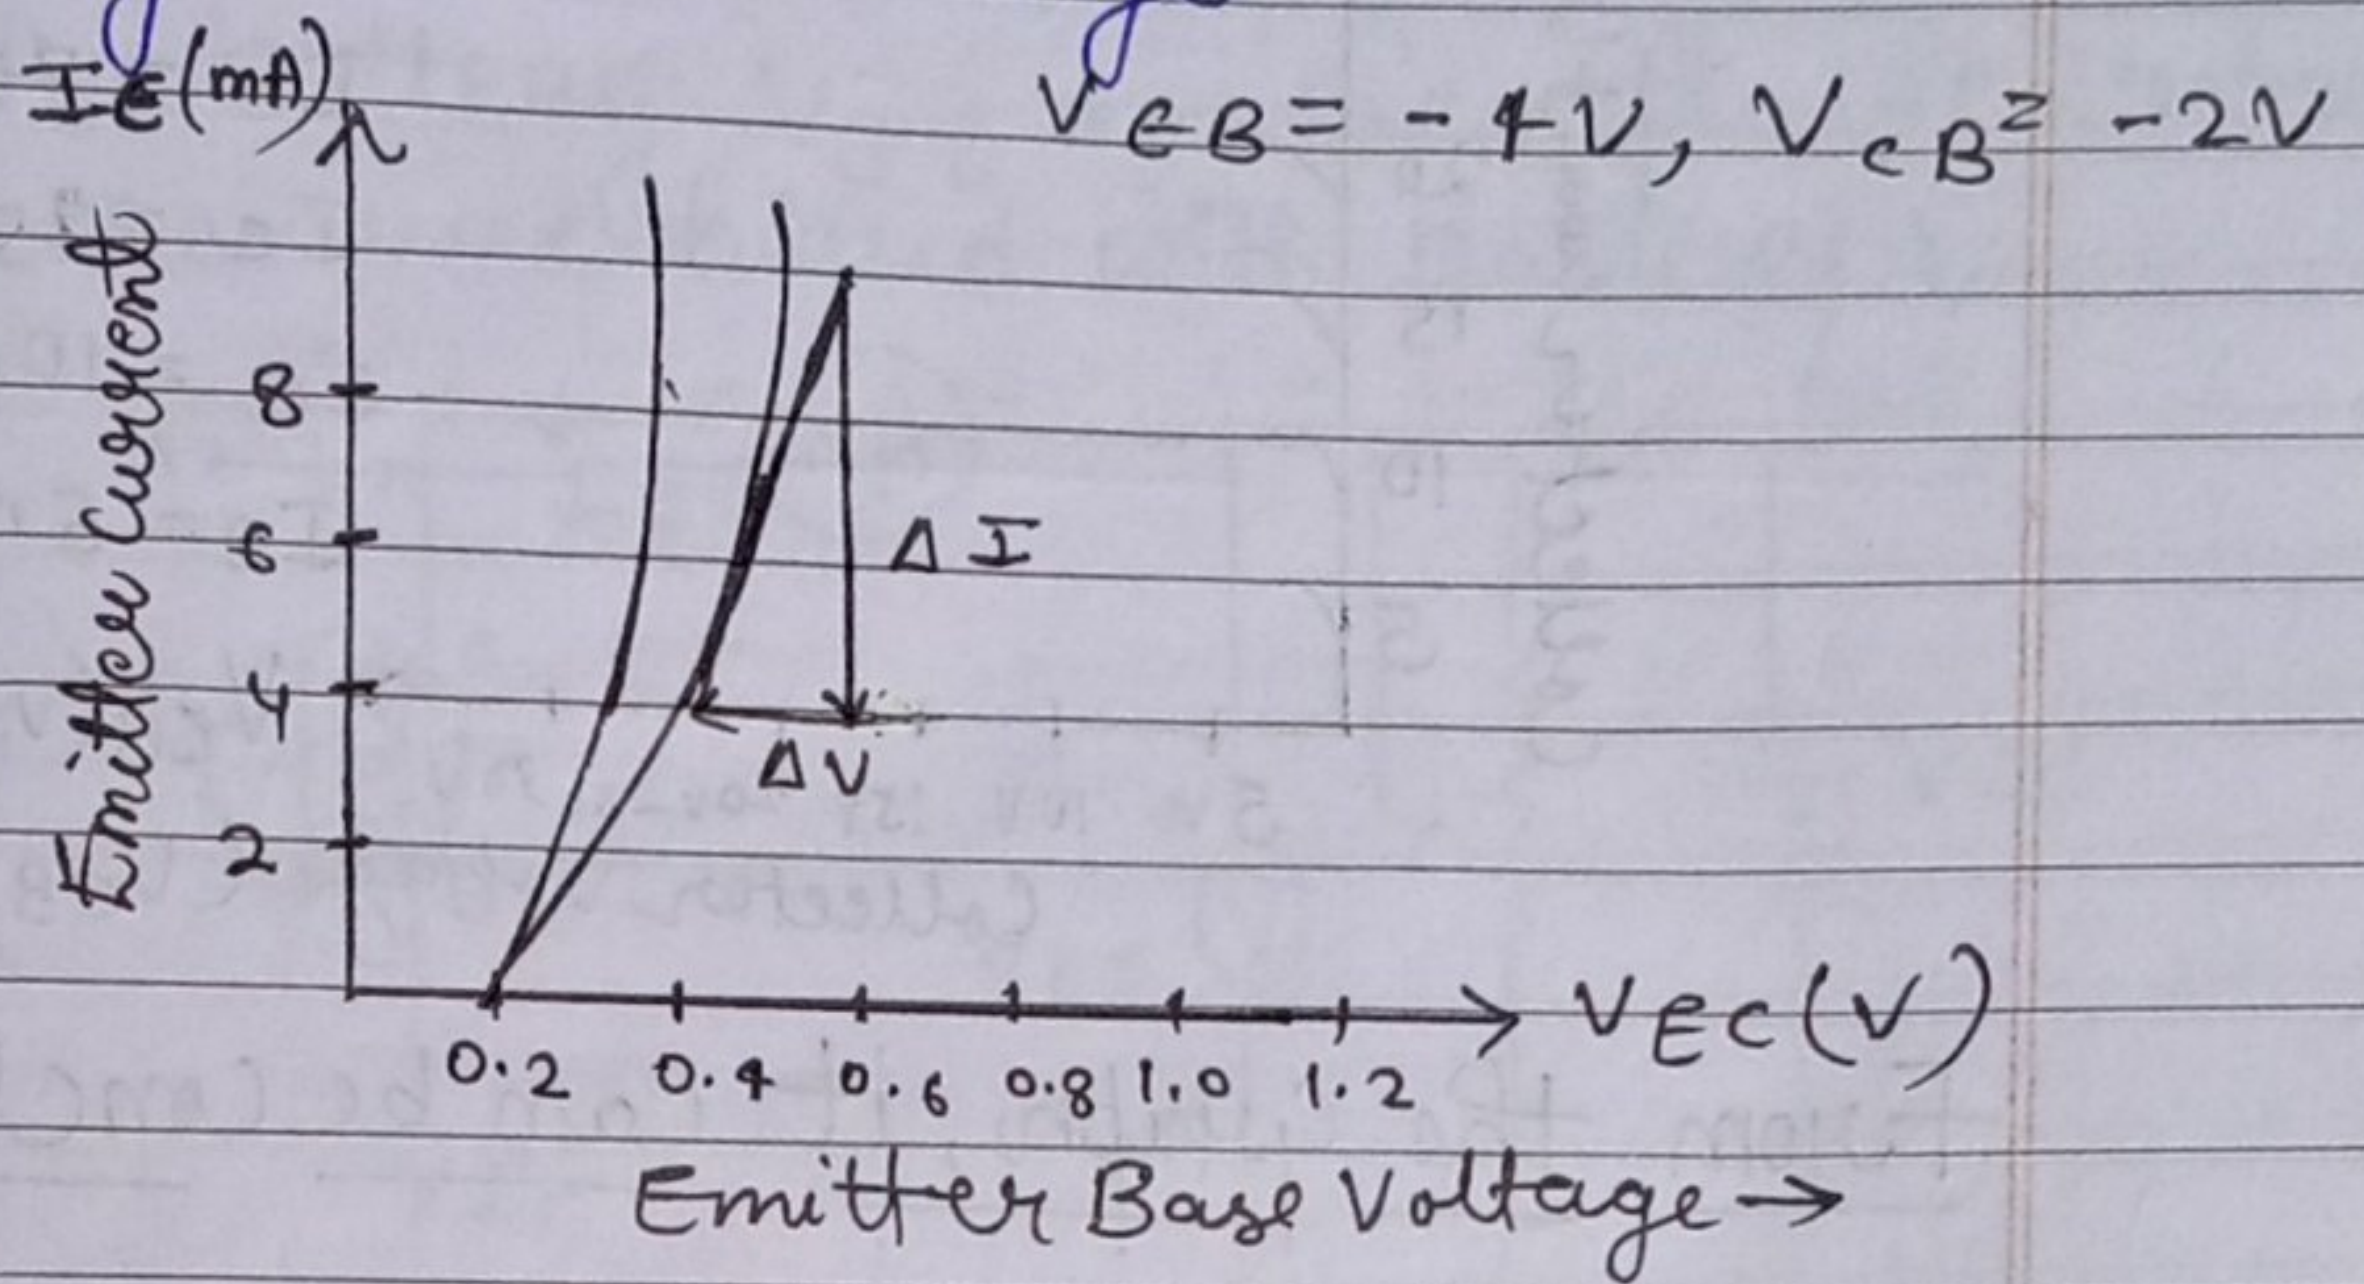 IE(mA)
VCB = -4V, VCB = -2V
Emitter Current
8
6
ΔI
4
ΔV
2
VEC(V)
0.2 0.4 0.6 0.8 1.0 1.2
Emitter Base Voltage →